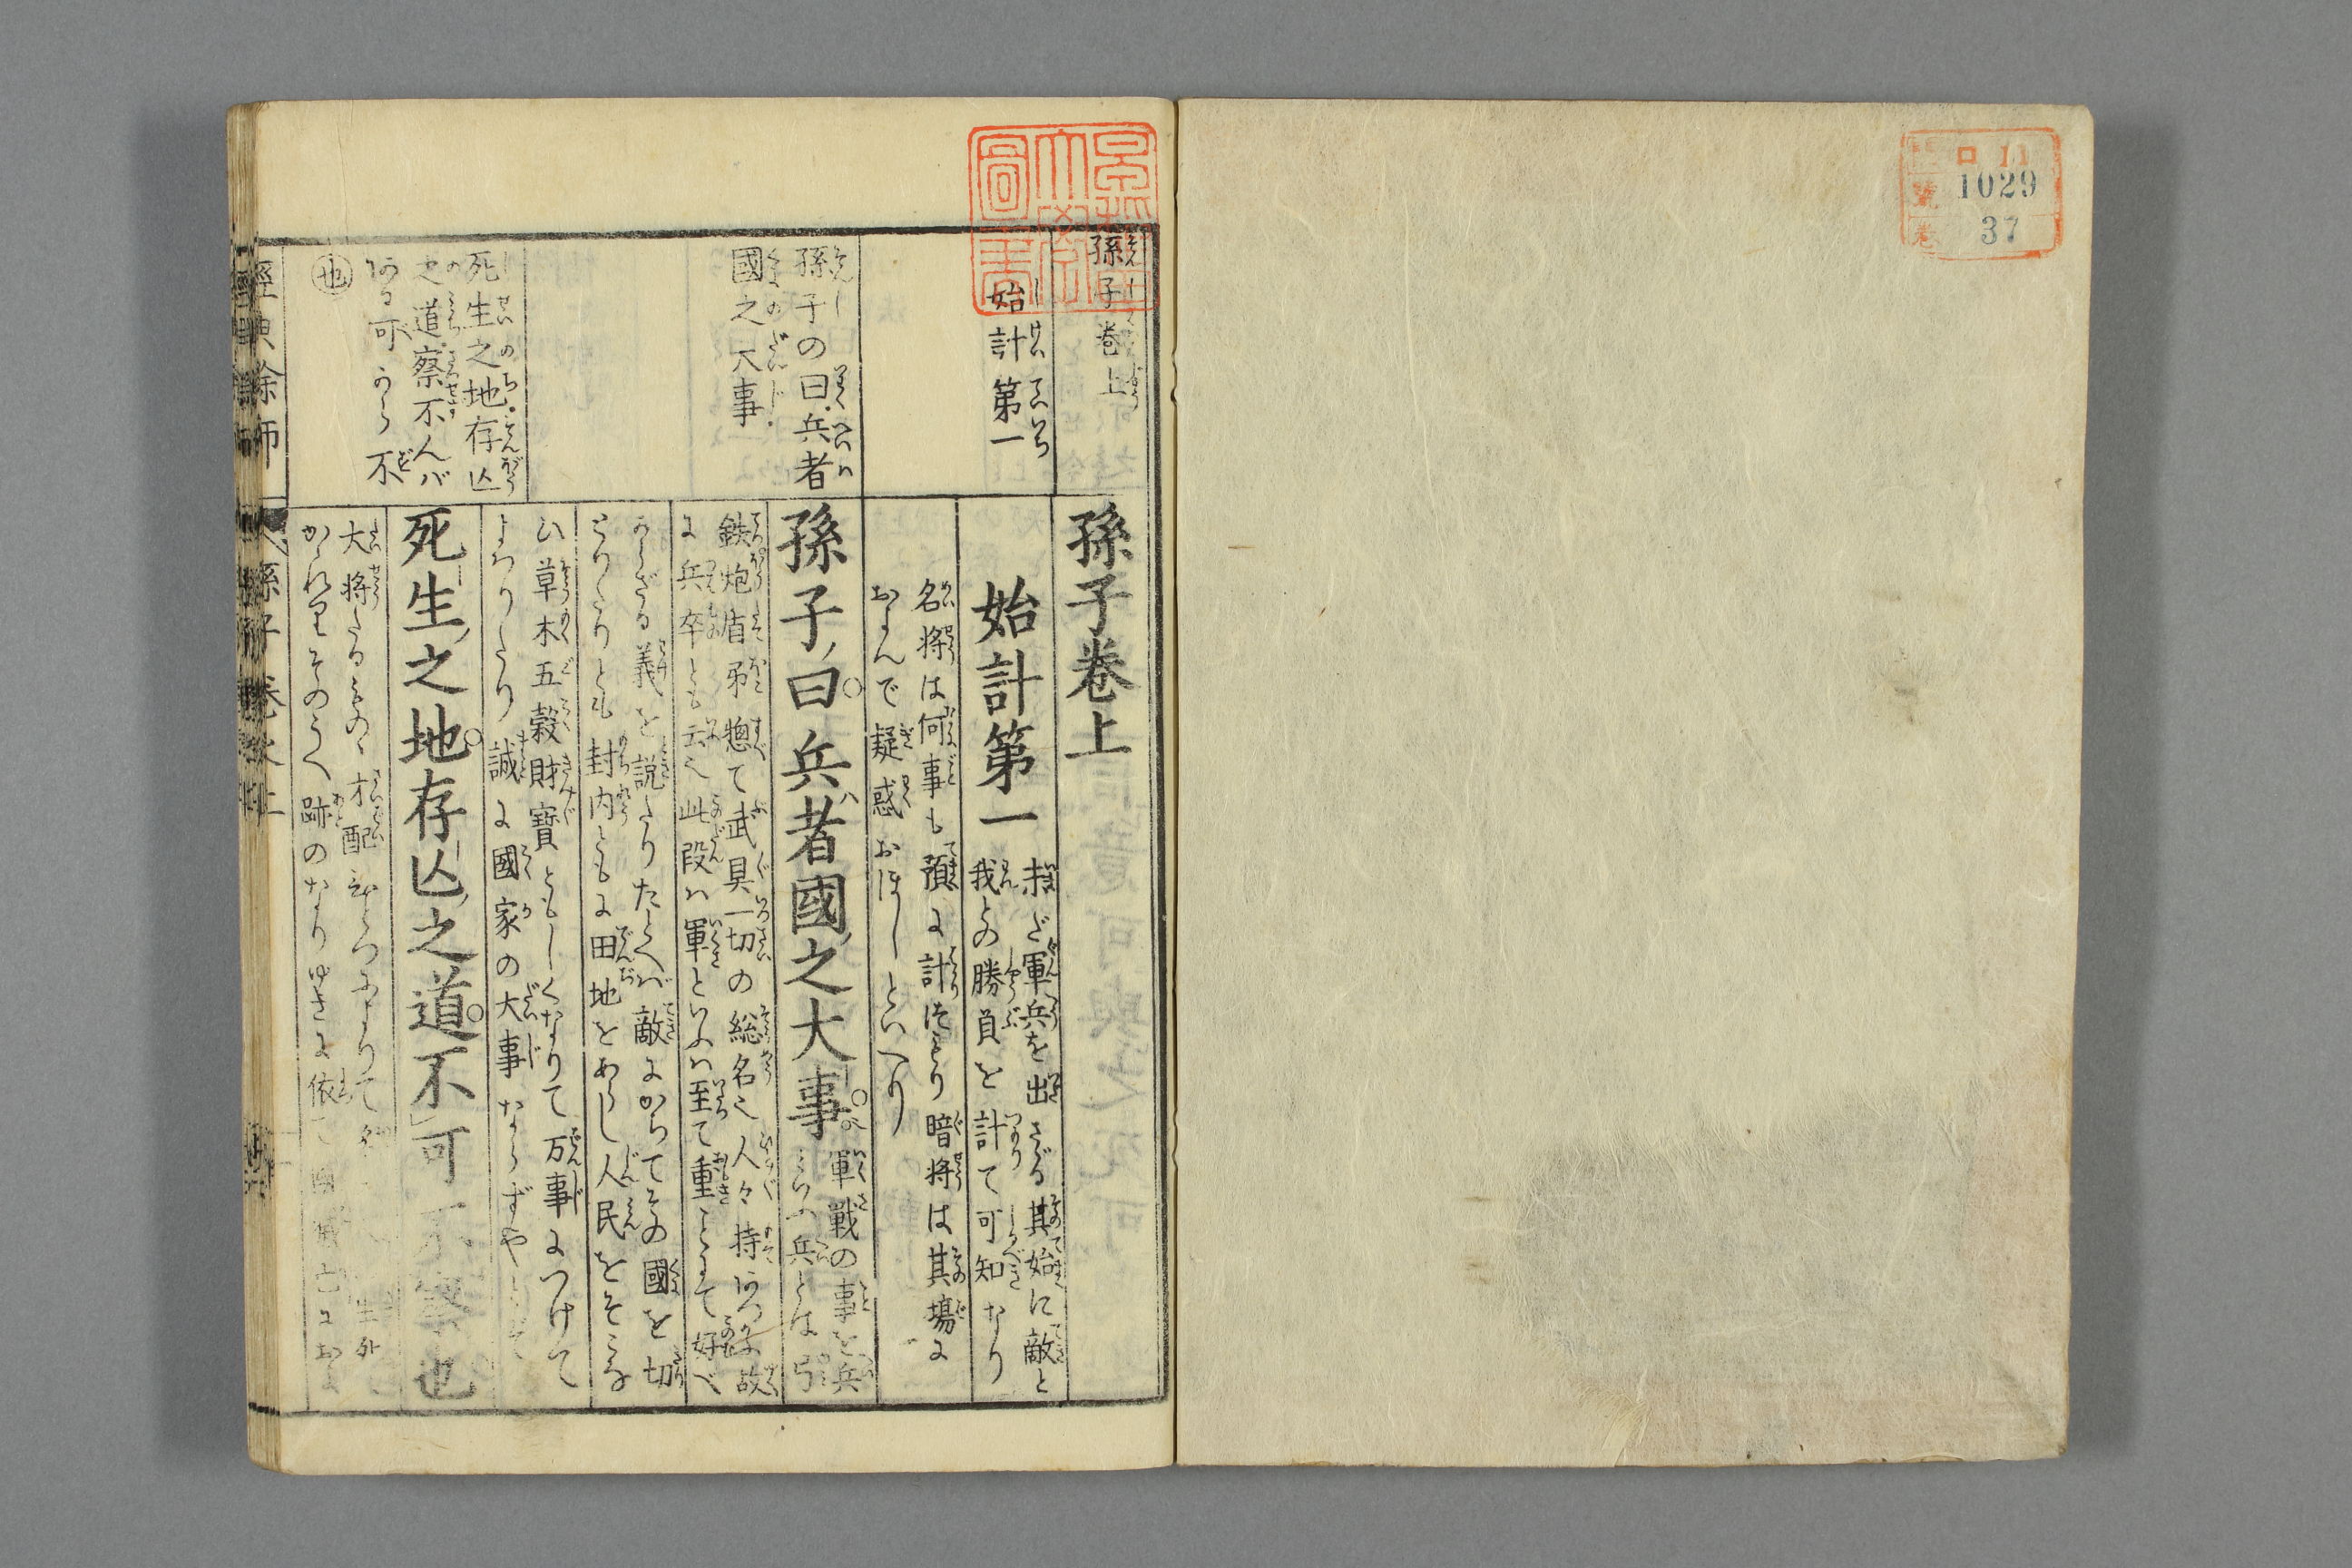 ロ 11
1029
37
孫子巻上
始計第一
孫子の曰兵者
國之大事
死生之地存亡
之道察不んバ
ある可からず不
也
孫子巻上
始計第一
未だ軍兵を出さざる其始に敵と
我との勝負を計て可知なり
名将は何事も預に計はかり暗将は其場に
およんで疑惑おほしといへり
孫子曰兵者國之大事
軍戦の事を兵
といふ兵とは弓
鉄炮盾弟惣て武具一切の総名也人々持あつかふ故
に兵卒とも云也此段ハ軍といふハ至て重ことにて好べ
からざる義を説たりたとへバ敵にかちてその國を切
とりたりとも封内ともに田地をあらし人民をそこな
ひ草木五穀財寶ともしくなりて万事につけて
よわりたり誠に國家の大事ならずや
死生之地存亡之道不可不察也
大将たるものゝ才配ひとつによりて
かゝれりそのうへ跡のなりゆきに依て
經典余師
孫子 巻之上